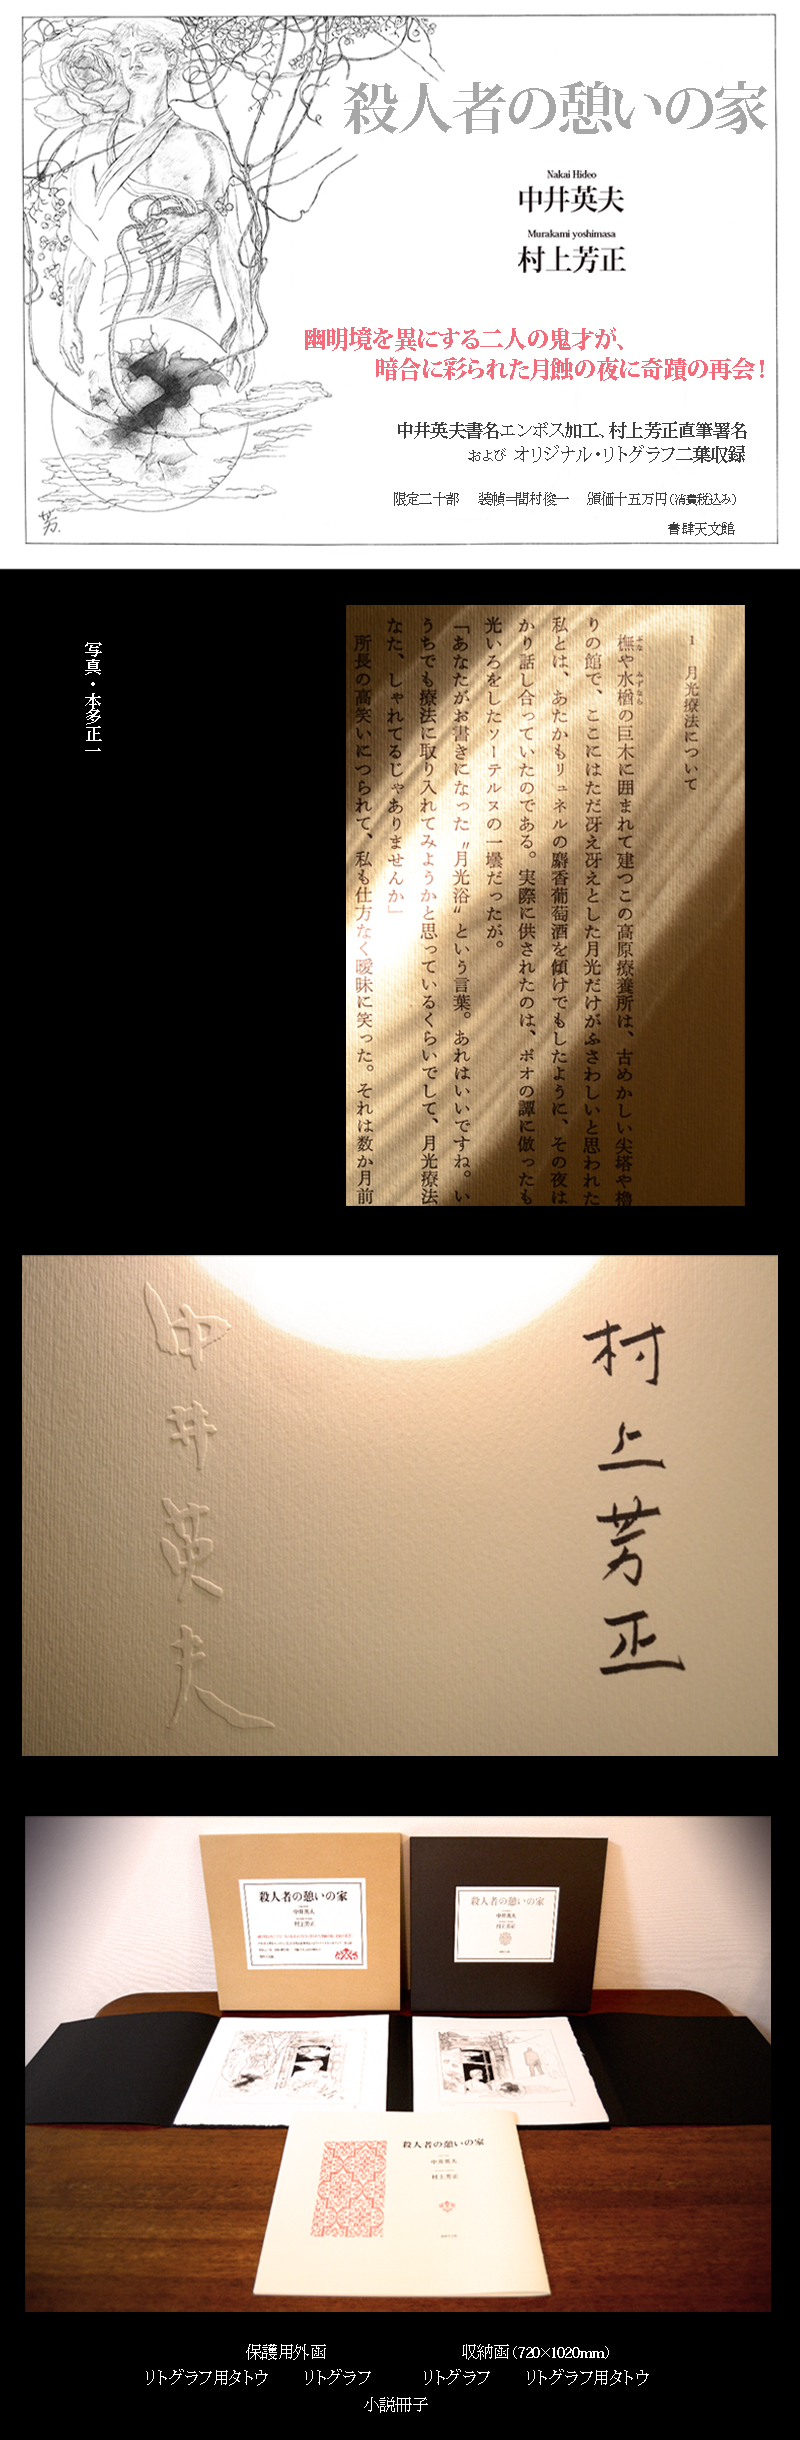 殺人者の憩いの家
Nakai Hideo
中井英夫
Murakami yoshimasa
村上芳正
幽明境を異にする二人の鬼才が、
暗合に彩られた月蝕の夜に奇蹟の再会！
中井英夫書名エンボス加工、村上芳正直筆署名
および オリジナル・リトグラフ二葉収録
限定二十部 装幀＝間村俊一 頒価十五万円（消費税込み）
書肆天文館
芳.
写真・本多正一
1 月光療法について
橅や水楢の巨木に囲まれて建つこの高原療養所は、古めかしい尖塔や櫓
りの館で、ここにはただ冴え冴えとした月光だけがふさわしいと思われた
私とは、あたかもリュネルの麝香葡萄酒を傾けでもしたように、その夜は
かり話し合っていたのである。実際に供されたのは、ポオの譚に倣ったも
光いろをしたソーテルヌの一壜だったが。
「あなたがお書きになった〝月光浴〟という言葉。あれはいいですね。い
うちでも療法に取り入れてみようかと思っているくらいでして、月光療法
なた、しゃれてるじゃありませんか」
所長の高笑いにつられて、私も仕方なく曖昧に笑った。それは数か月前
村上芳正
中井英夫
殺人者の憩いの家
中井英夫
村上芳正
殺人者の憩いの家
中井英夫
村上芳正
殺人者の憩いの家
中井英夫
村上芳正
保護用外函 収納函（720×1020mm）
リトグラフ用タトウ リトグラフ リトグラフ リトグラフ用タトウ
小説冊子